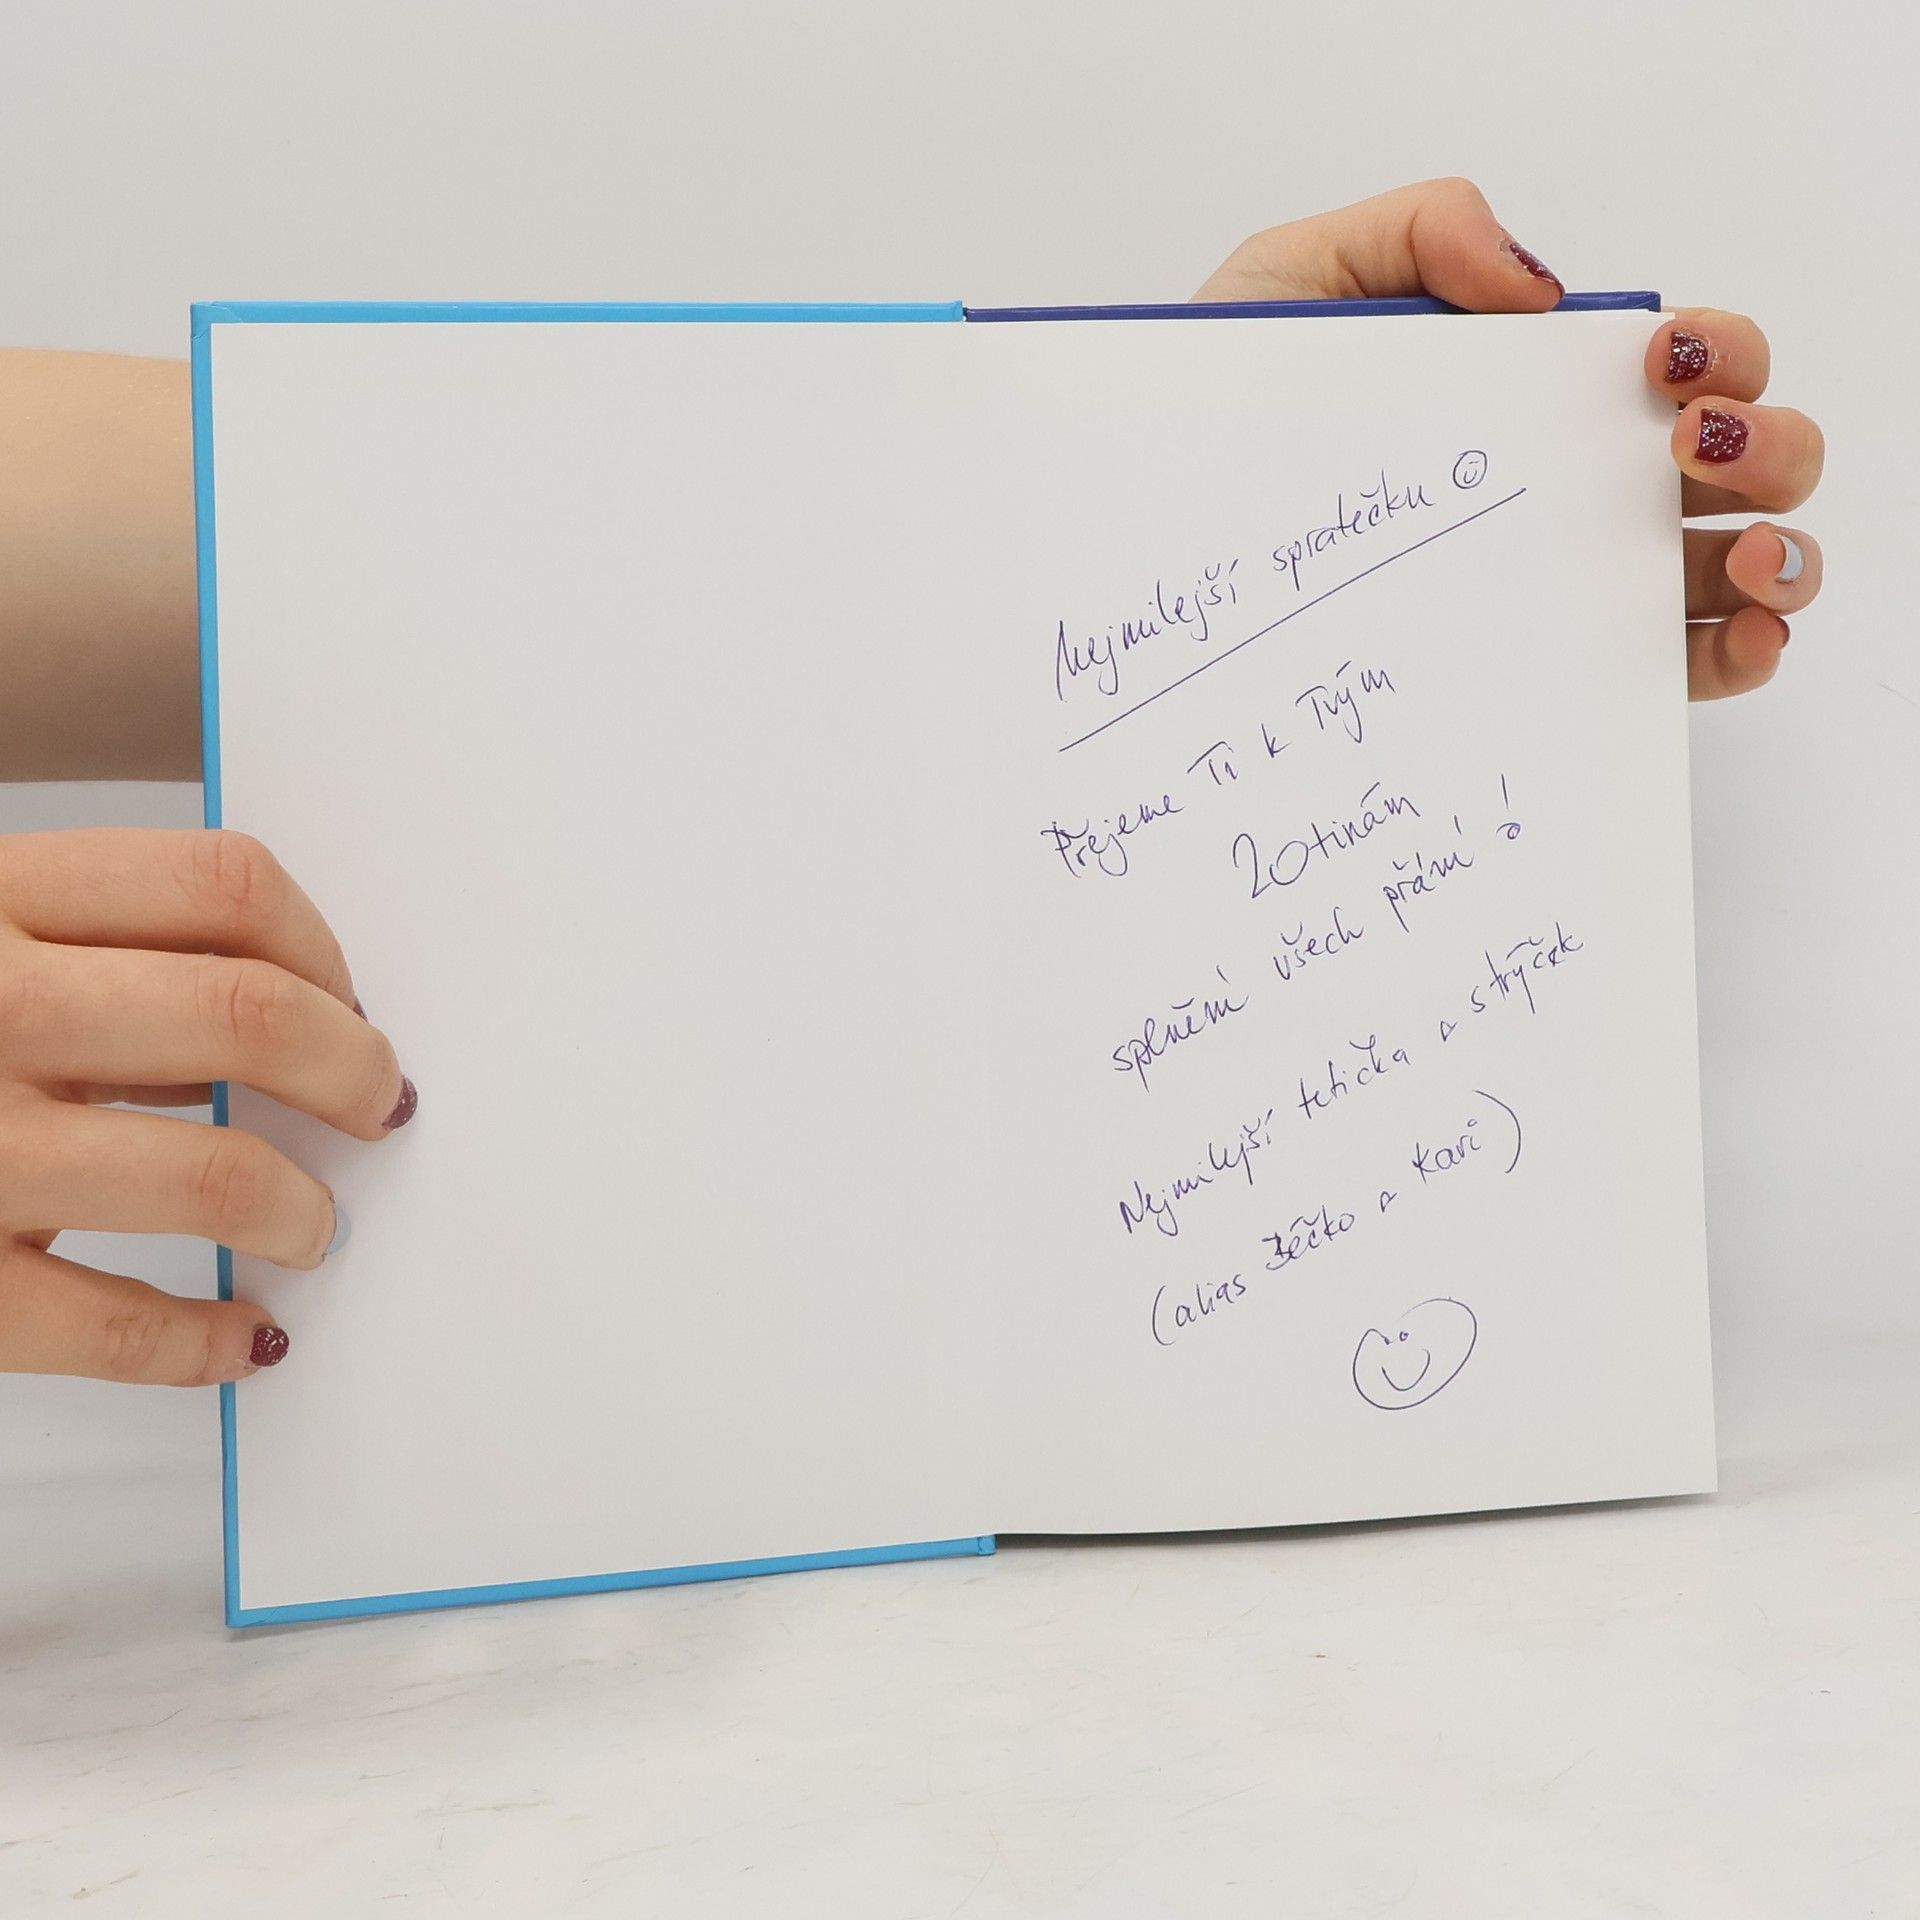 Nejmilejší spratečku
Přejeme Ti k Tvým
20tinám
splnění všech přání!
Nejmilejší tetička a strýček
(alias a Kari)